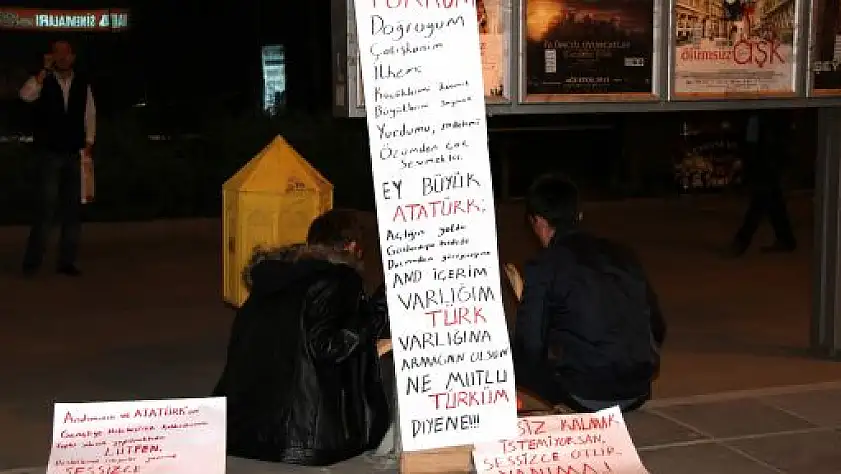 SİNEMALARI
TÜRKÜM
Doğruyum
Çalışkanım
İlkem
Küçüklerimi korumak
Büyüklerimi saymak
Yurdumu, milletimi
Özümden çok
sevmektir.
EY BÜYÜK
ATATÜRK;
Açtığın yolda
Gösterdiğin hedefe
Durmadan yürüyeceğime
AND İÇERİM
VARLIĞIM
TÜRK
VARLIĞINA
ARMAĞAN OLSUN
NE MUTLU
TÜRKÜM
DİYENE!!!
dilimsiz aşk
Andımızın ve ATATÜRK'ün
Gençliğe Hitabesinin kaldırılmasına
LÜTFEN,
SESSİZCE
SİZ KALMAK
İSTEMİYORSAN,
SESSİZCE OTUR